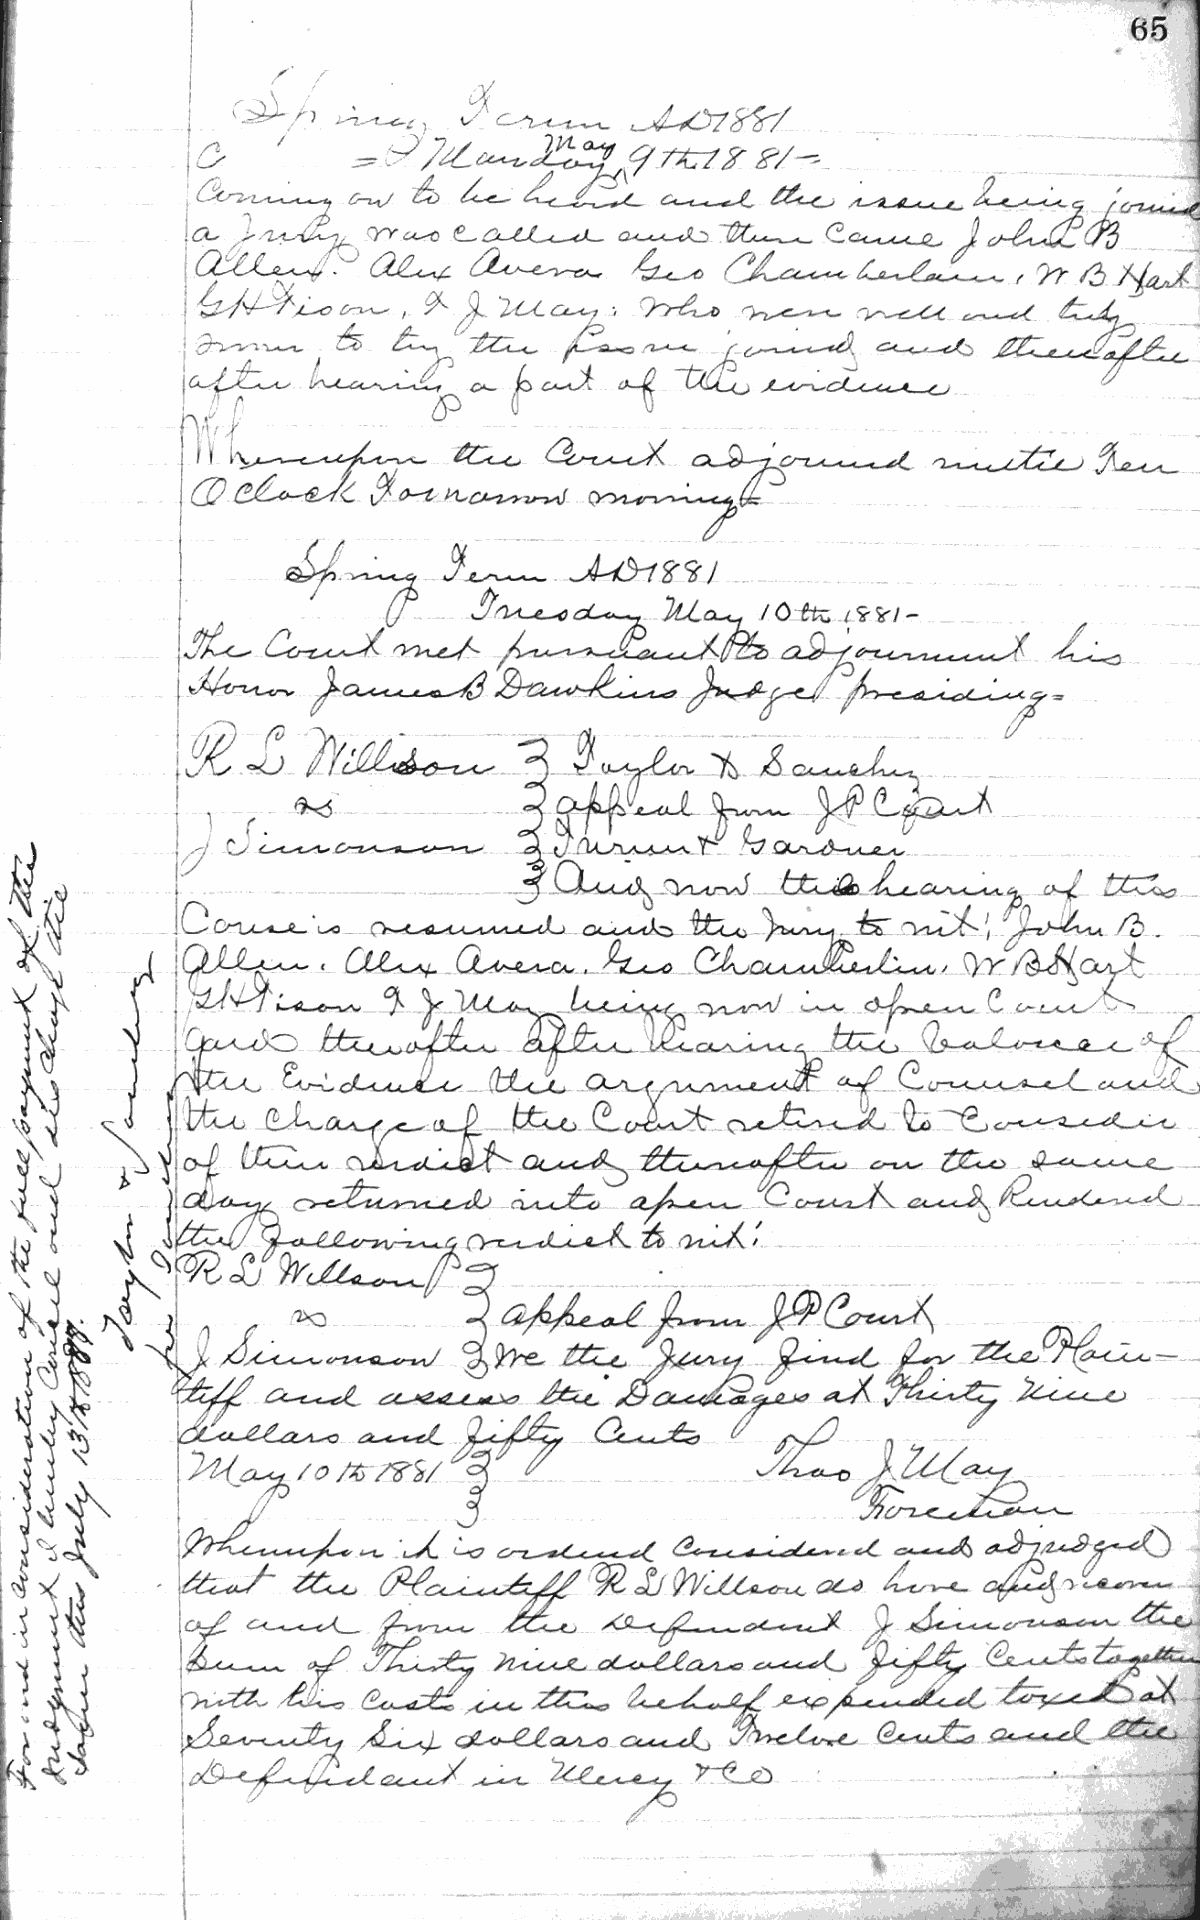 65
Spring Term AD 1881
= Monday May 9th 1881 =
Coming on to be heard and the issue being joined
a Jury was called and then came John B
Allen. Alex Avera Geo Chamberlain, W B Hart
G H Tison, T J May: who were well and truly
sworn to try the issue joined and thereafter
after hearing a part of the evidence
Whereupon the Court adjourned until Ten
Oclock Tomorrow morning =
Spring Term AD 1881
Tuesday May 10th 1881 -
The Court met pursuant to adjournment his
Honor James B Dawkins Judge presiding =
R L Willson } Taylor & Sanchez
vs } appeal from J P Court
J Simonson } Turner & Gardner
} And now the hearing of this
Couse is resumed and the Jury to wit; John B.
Allen. Alex Avera. Geo Chamberlin. W B Hart
G H Tison T J May being now in open Court
and thereafter after hearing the balance of
the Evidence the argument of Counsel and
the charge of the Court retired to Consider
of their verdict and thereafter on the same
day returned into open Court and Rendered
the following verdict to wit;
R L Willson }
vs } appeal from J P Court
J Simonson } We the Jury find for the Plain-
tiff and assess the Damages at Thirty Nine
dollars and fifty Cents
May 10th 1881 } Thos J May
} Foreman
Whereupon it is ordered considered and adjudged
that the Plaintiff R L Willson do have and recover
of and from the Defendant J Simonson the
sum of Thirty nine dollars and fifty Cents together
with his Costs in this behalf expended taxed at
Seventy Six dollars and Twelve Cents and the
Defendant in Mercy & Co
For and in consideration of the full payment of the
Judgment I hereby Cancel and discharge the
same this July 13th 1889.
Taylor & Sanchez
per